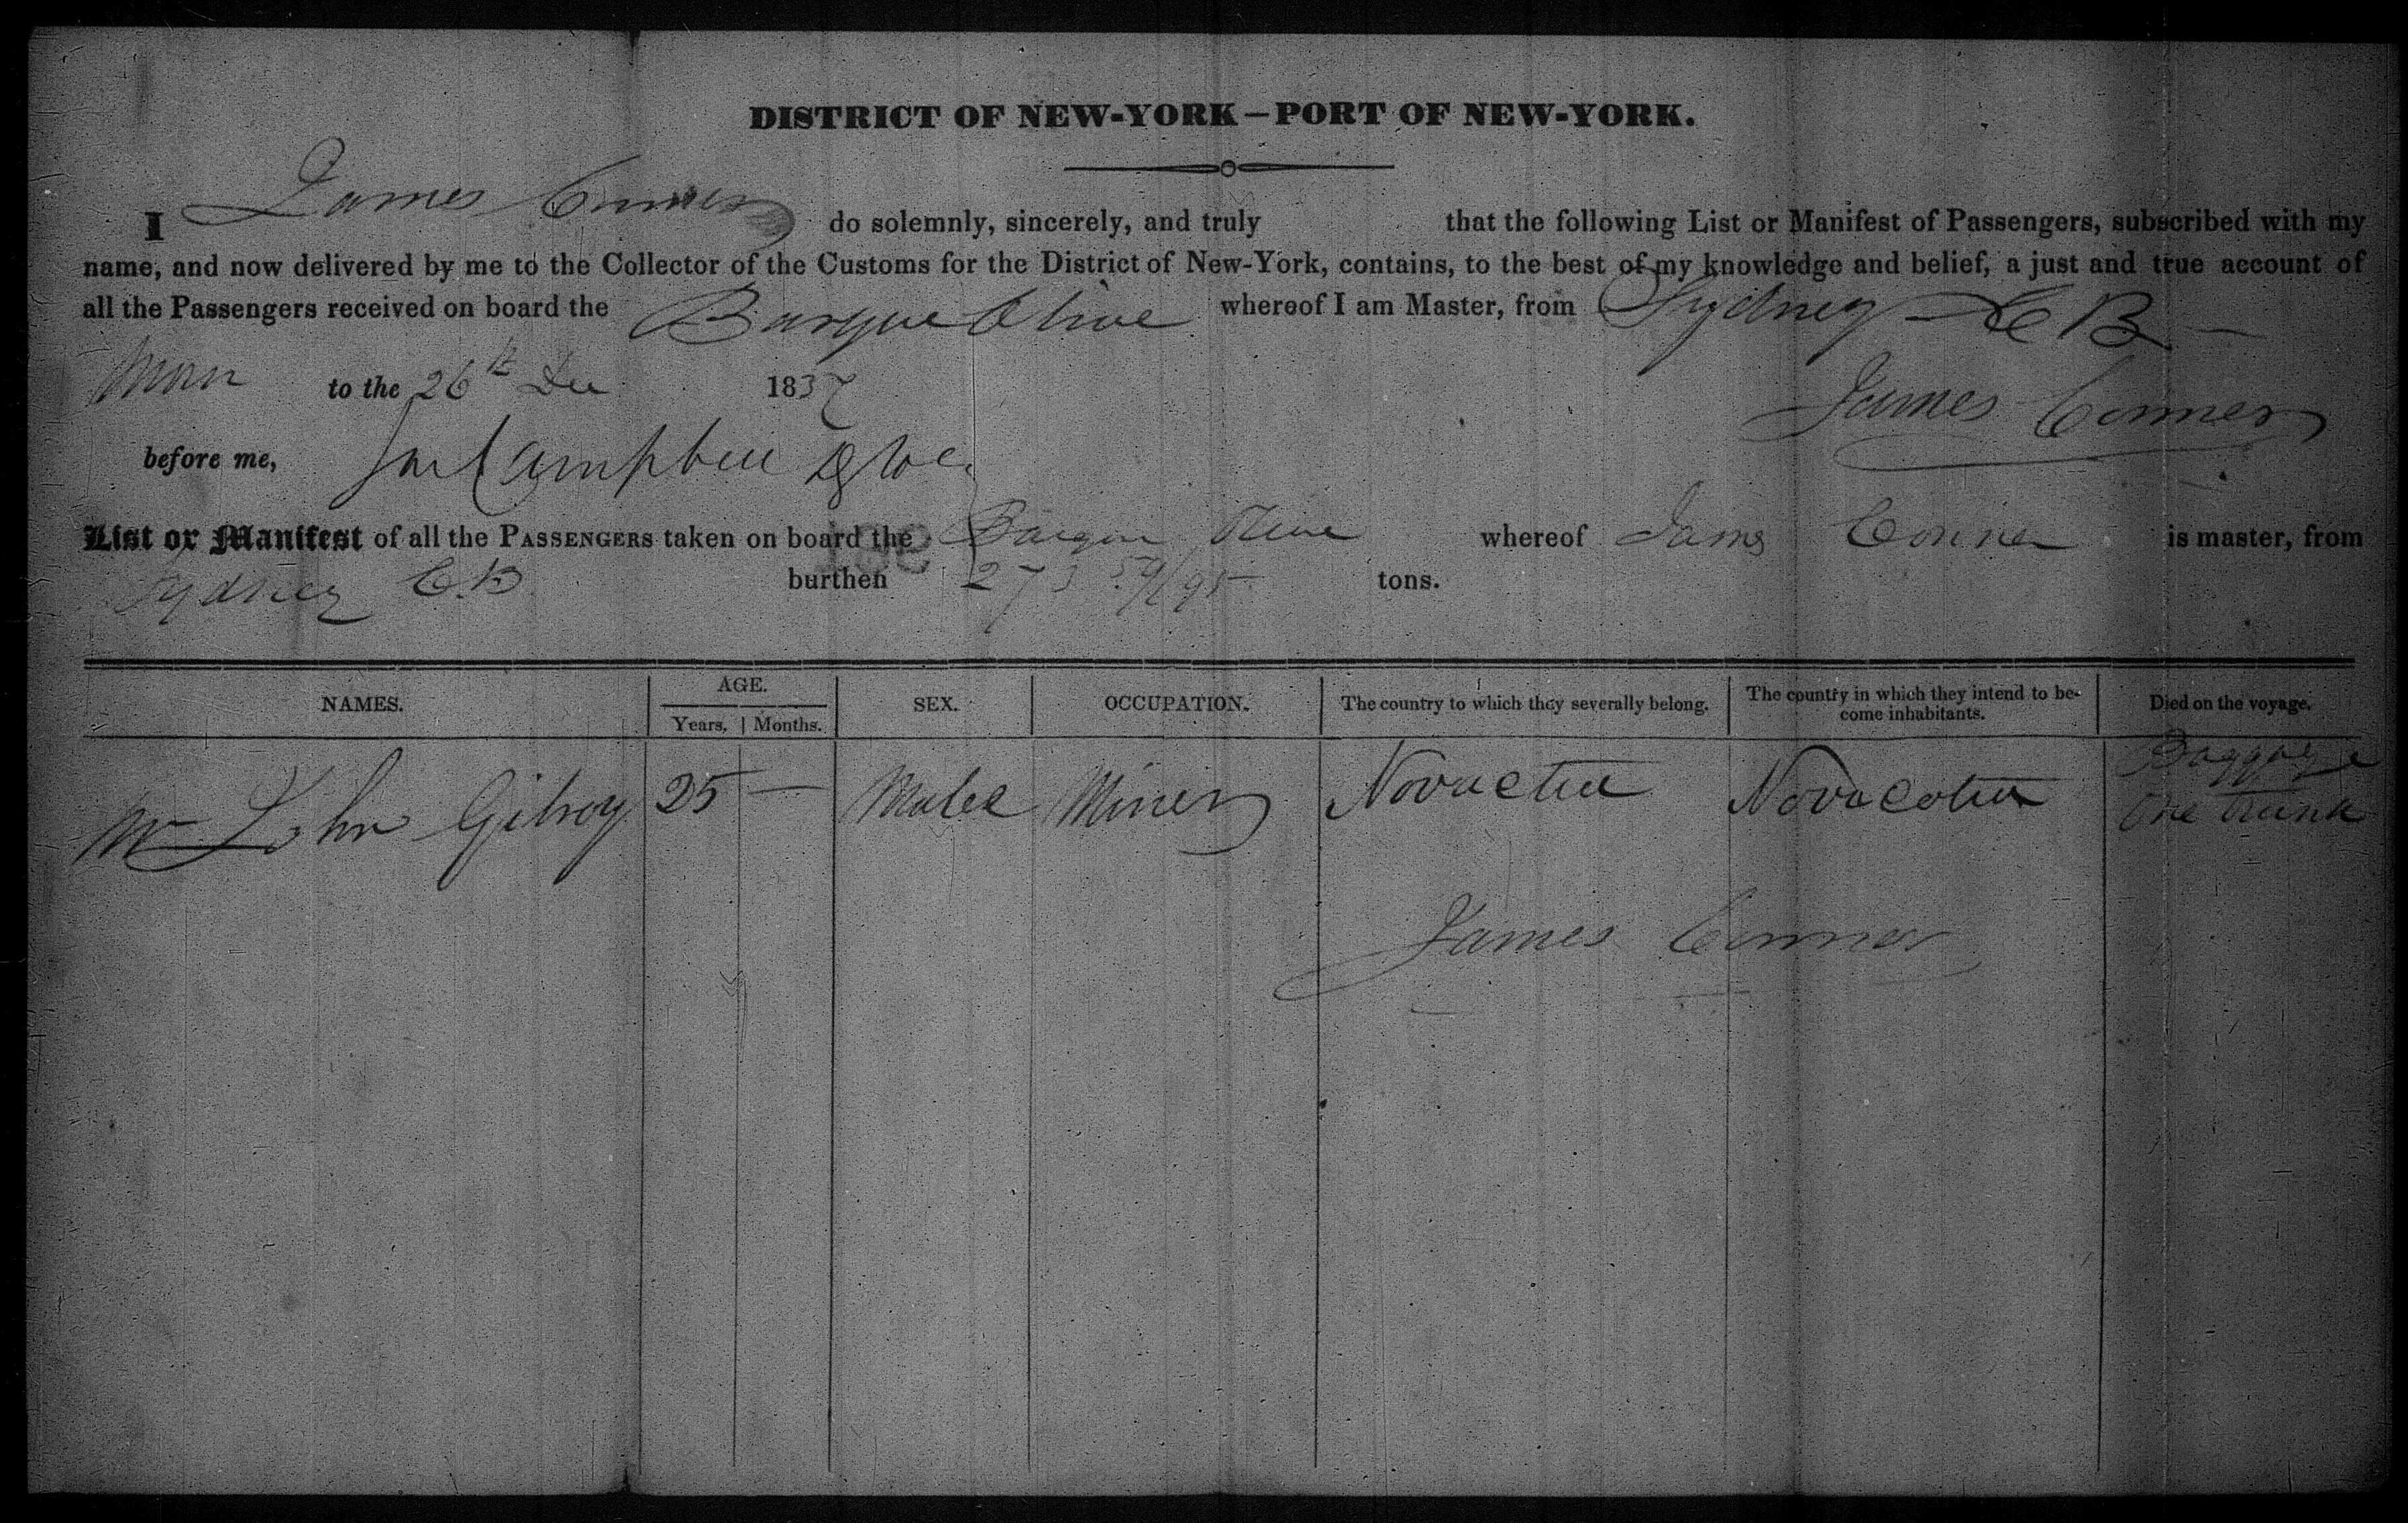 DISTRICT OF NEW-YORK—PORT OF NEW-YORK.
I James Conner do solemnly, sincerely, and truly that the following List or Manifest of Passengers, subscribed with my
name, and now delivered by me to the Collector of the Customs for the District of New-York, contains, to the best of my knowledge and belief, a just and true account of
all the Passengers received on board the Barque Olive whereof I am Master, from Sydney CB
to the 26th Dec 1837
James Conner
before me, Campbell
List or Manifest of all the PASSENGERS taken on board the Barque Olive whereof James Conner is master, from
Sydney C.B burthen 273 59/95 tons.
NAMES. AGE. SEX. OCCUPATION. The country to which they severally belong. The country in which they intend to be- Died on the voyage.
Years. Months. come inhabitants.
Baggage
Mr John Gilroy 25 — Male Miner Novacotia Novacotia One trunk
James Conner